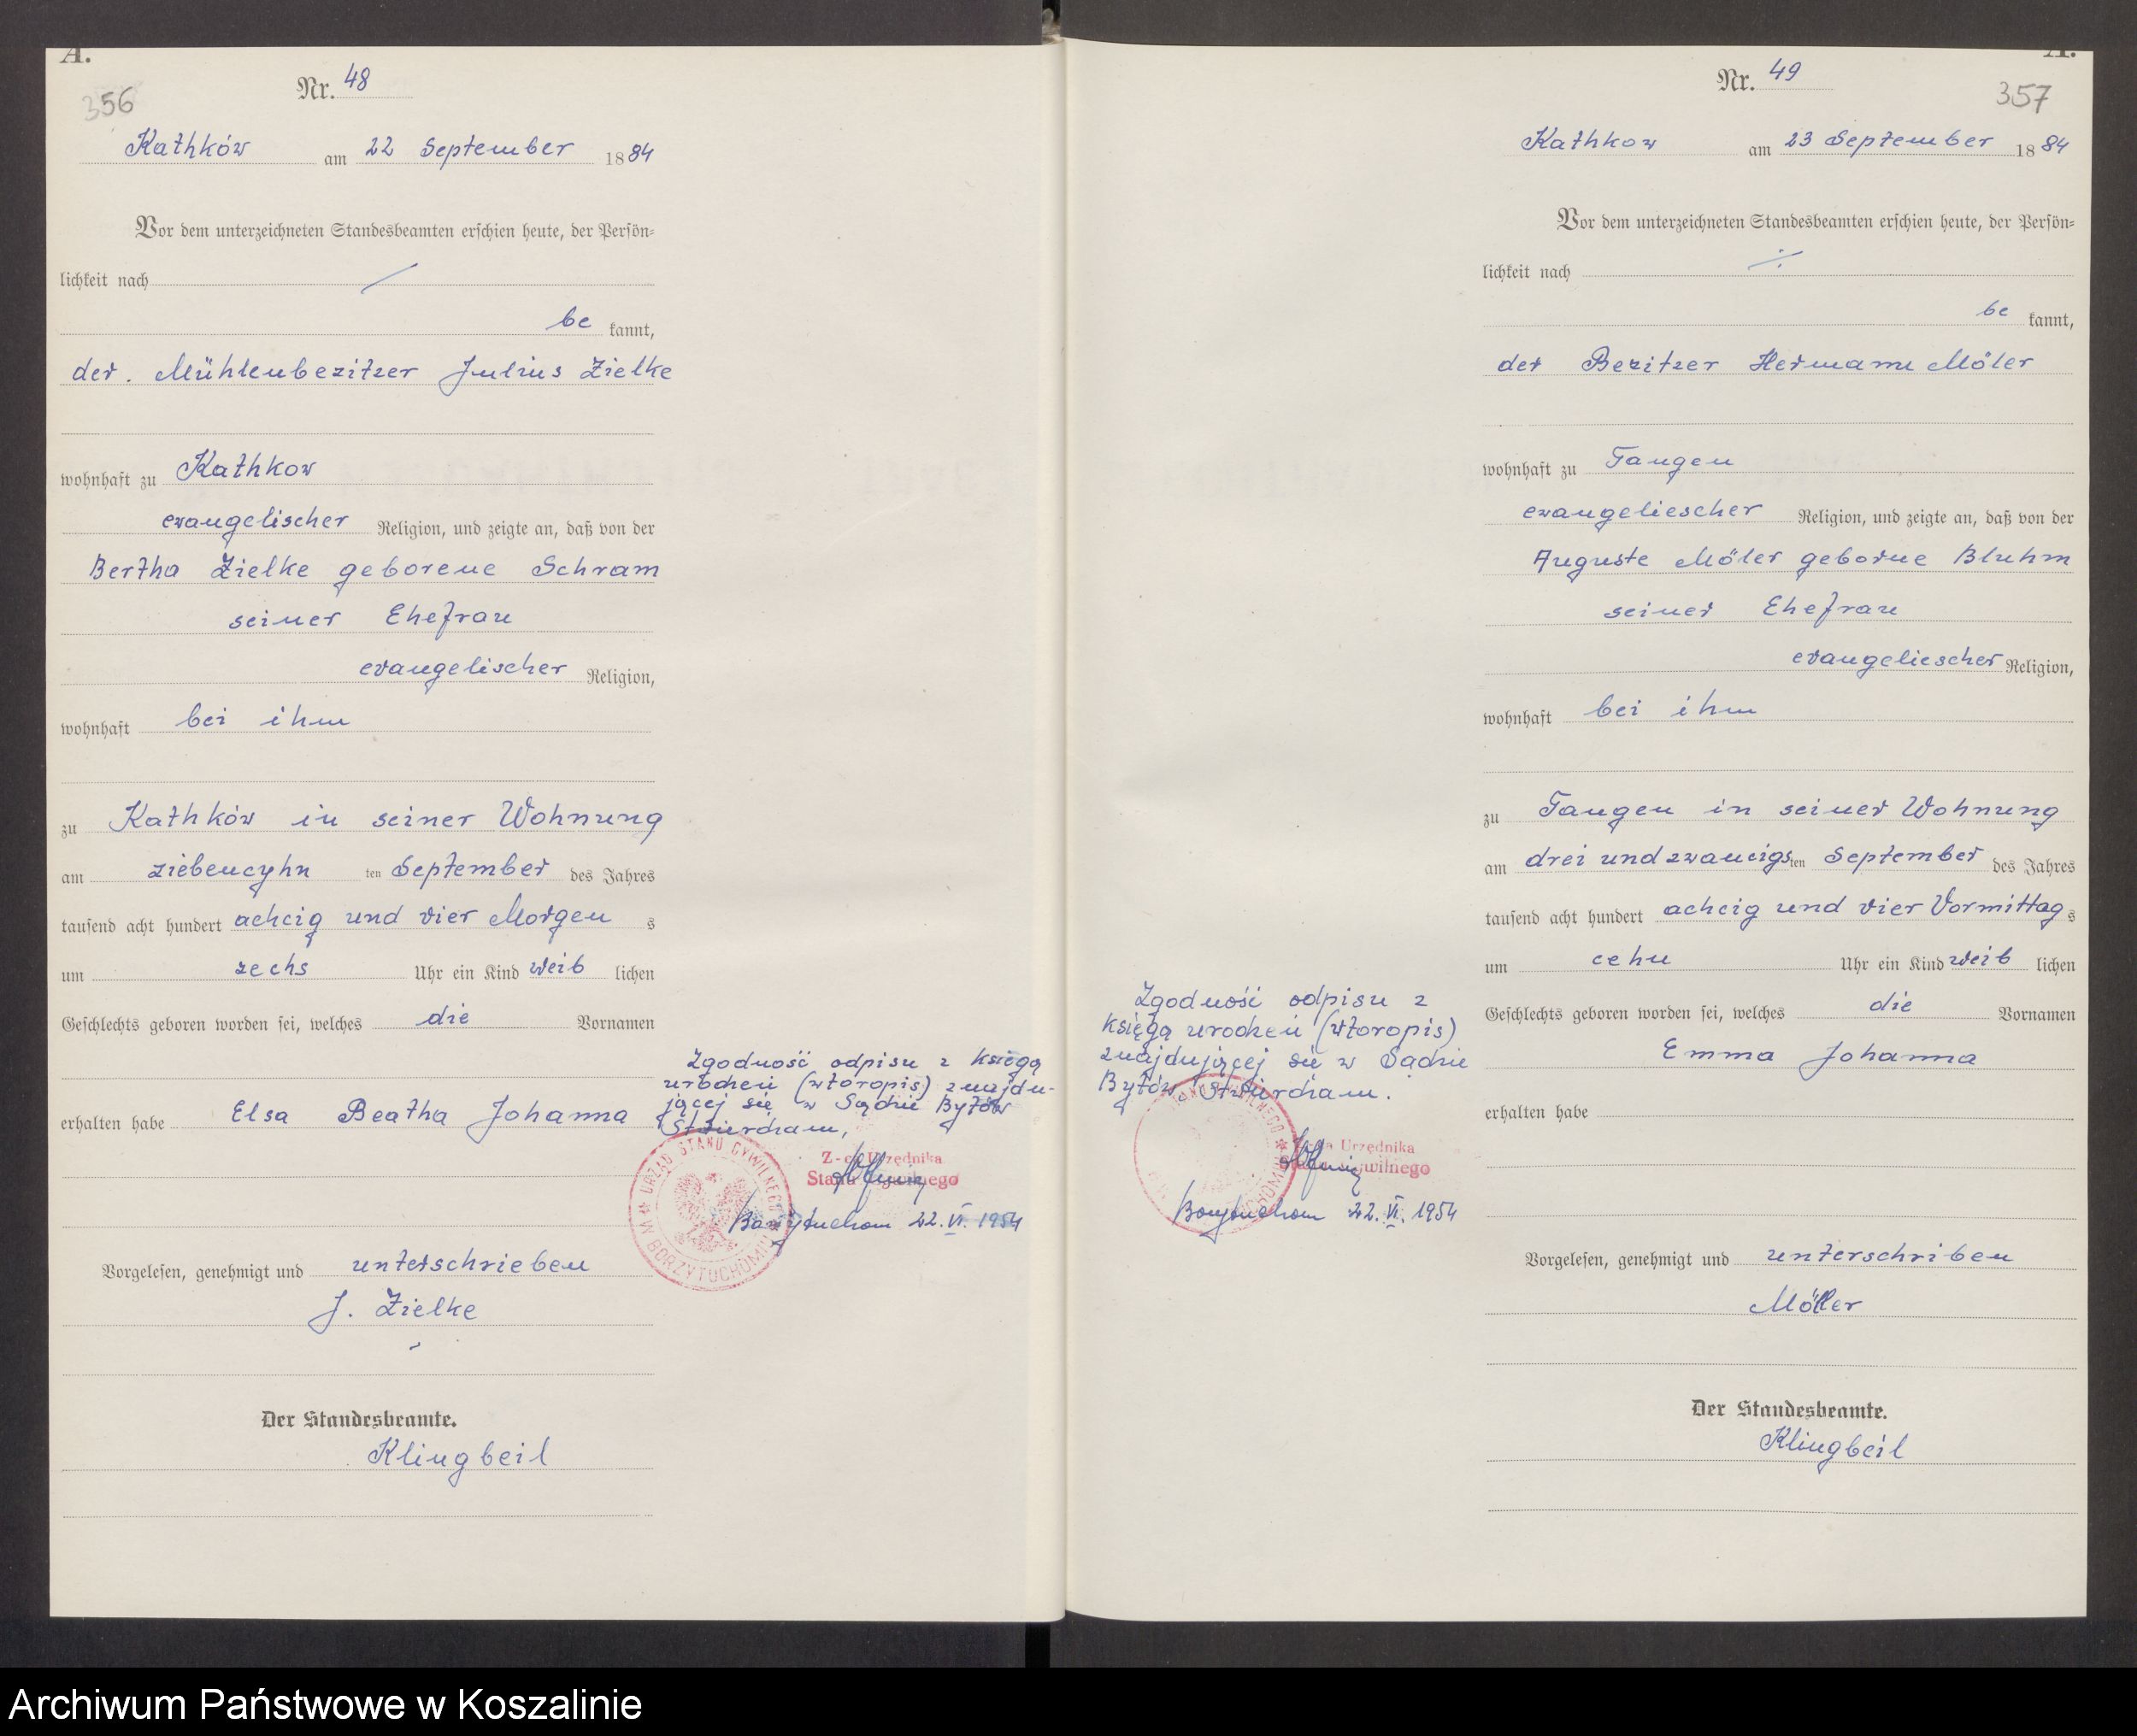 A.
356
Nr. 48
Kathków am 22 September 1884
Vor dem unterzeichneten Standesbeamten erschien heute, der Persön=
lichkeit nach
be kannt,
der. Mühlenbezitzer Julius Zielke
wohnhaft zu Kathkow
evangelischer Religion, und zeigte an, daß von der
Bertha Zielke geborene Schram
seiner Ehefrau
evangelischer Religion,
wohnhaft bei ihm
zu Kathków in seiner Wohnung
am ziebencyhn ten September des Jahres
tausend acht hundert achcig und vier Morgen s
um zechs Uhr ein Kind weib lichen
Geschlechts geboren worden sei, welches die Vornamen
erhalten habe Elsa Beatha Johanna
Vorgelesen, genehmigt und unterschrieben
J. Zielke
Der Standesbeamte.
Klingbeil
Zgodność odpisu z księgą
urodzeń (wtoropis) znajdu-
jącej się w Sądzie Bytów
Stwierdzam,
URZĄD STANU CYWILNEGO
W BORZYTUCHOMIU
Z-ca Urzędnika
Stanu Cywilnego
Borzytuchom 22. VI. 1954
A.
357
Nr. 49
Kathkow am 23 September 1884
Vor dem unterzeichneten Standesbeamten erschien heute, der Persön=
lichkeit nach
be kannt,
der Bezitzer Hermann Möler
wohnhaft zu Tangen
evangeliescher Religion, und zeigte an, daß von der
Auguste Möler geborne Bluhm
seiner Ehefrau
evangeliescher Religion,
wohnhaft bei ihm
zu Tangen in seiner Wohnung
am drei und zwancigs ten September des Jahres
tausend acht hundert achcig und vier Vormittag s
um cehn Uhr ein Kind weib lichen
Geschlechts geboren worden sei, welches die Vornamen
Emma Johanna
erhalten habe
Vorgelesen, genehmigt und unterschriben
Möller
Der Standesbeamte.
Klingbeil
Zgodność odpisu z
księgą urodzeń (wtoropis)
znajdującej się w Sądzie
Bytów. Stwierdzam.
Z-ca Urzędnika
Stanu Cywilnego
Borzytuchom 22. VI. 1954
Archiwum Państwowe w Koszalinie